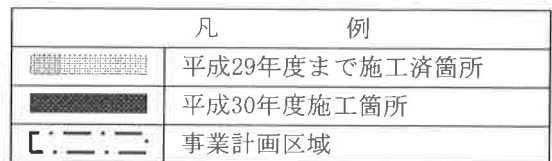 凡例
平成29年度まで施工済箇所
平成30年度施工箇所
事業計画区域